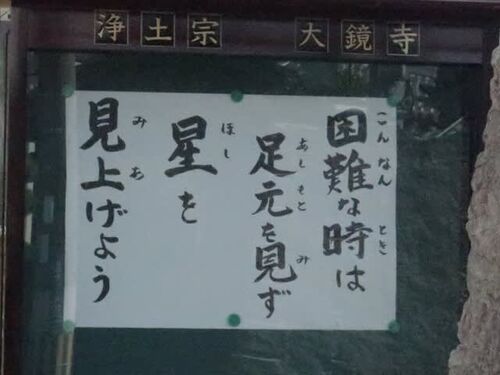 浄土宗 大鏡寺
困難な時は
こんなん とき
足元を見ず
あしもと み
星を
ほし
見上げよう
みあ